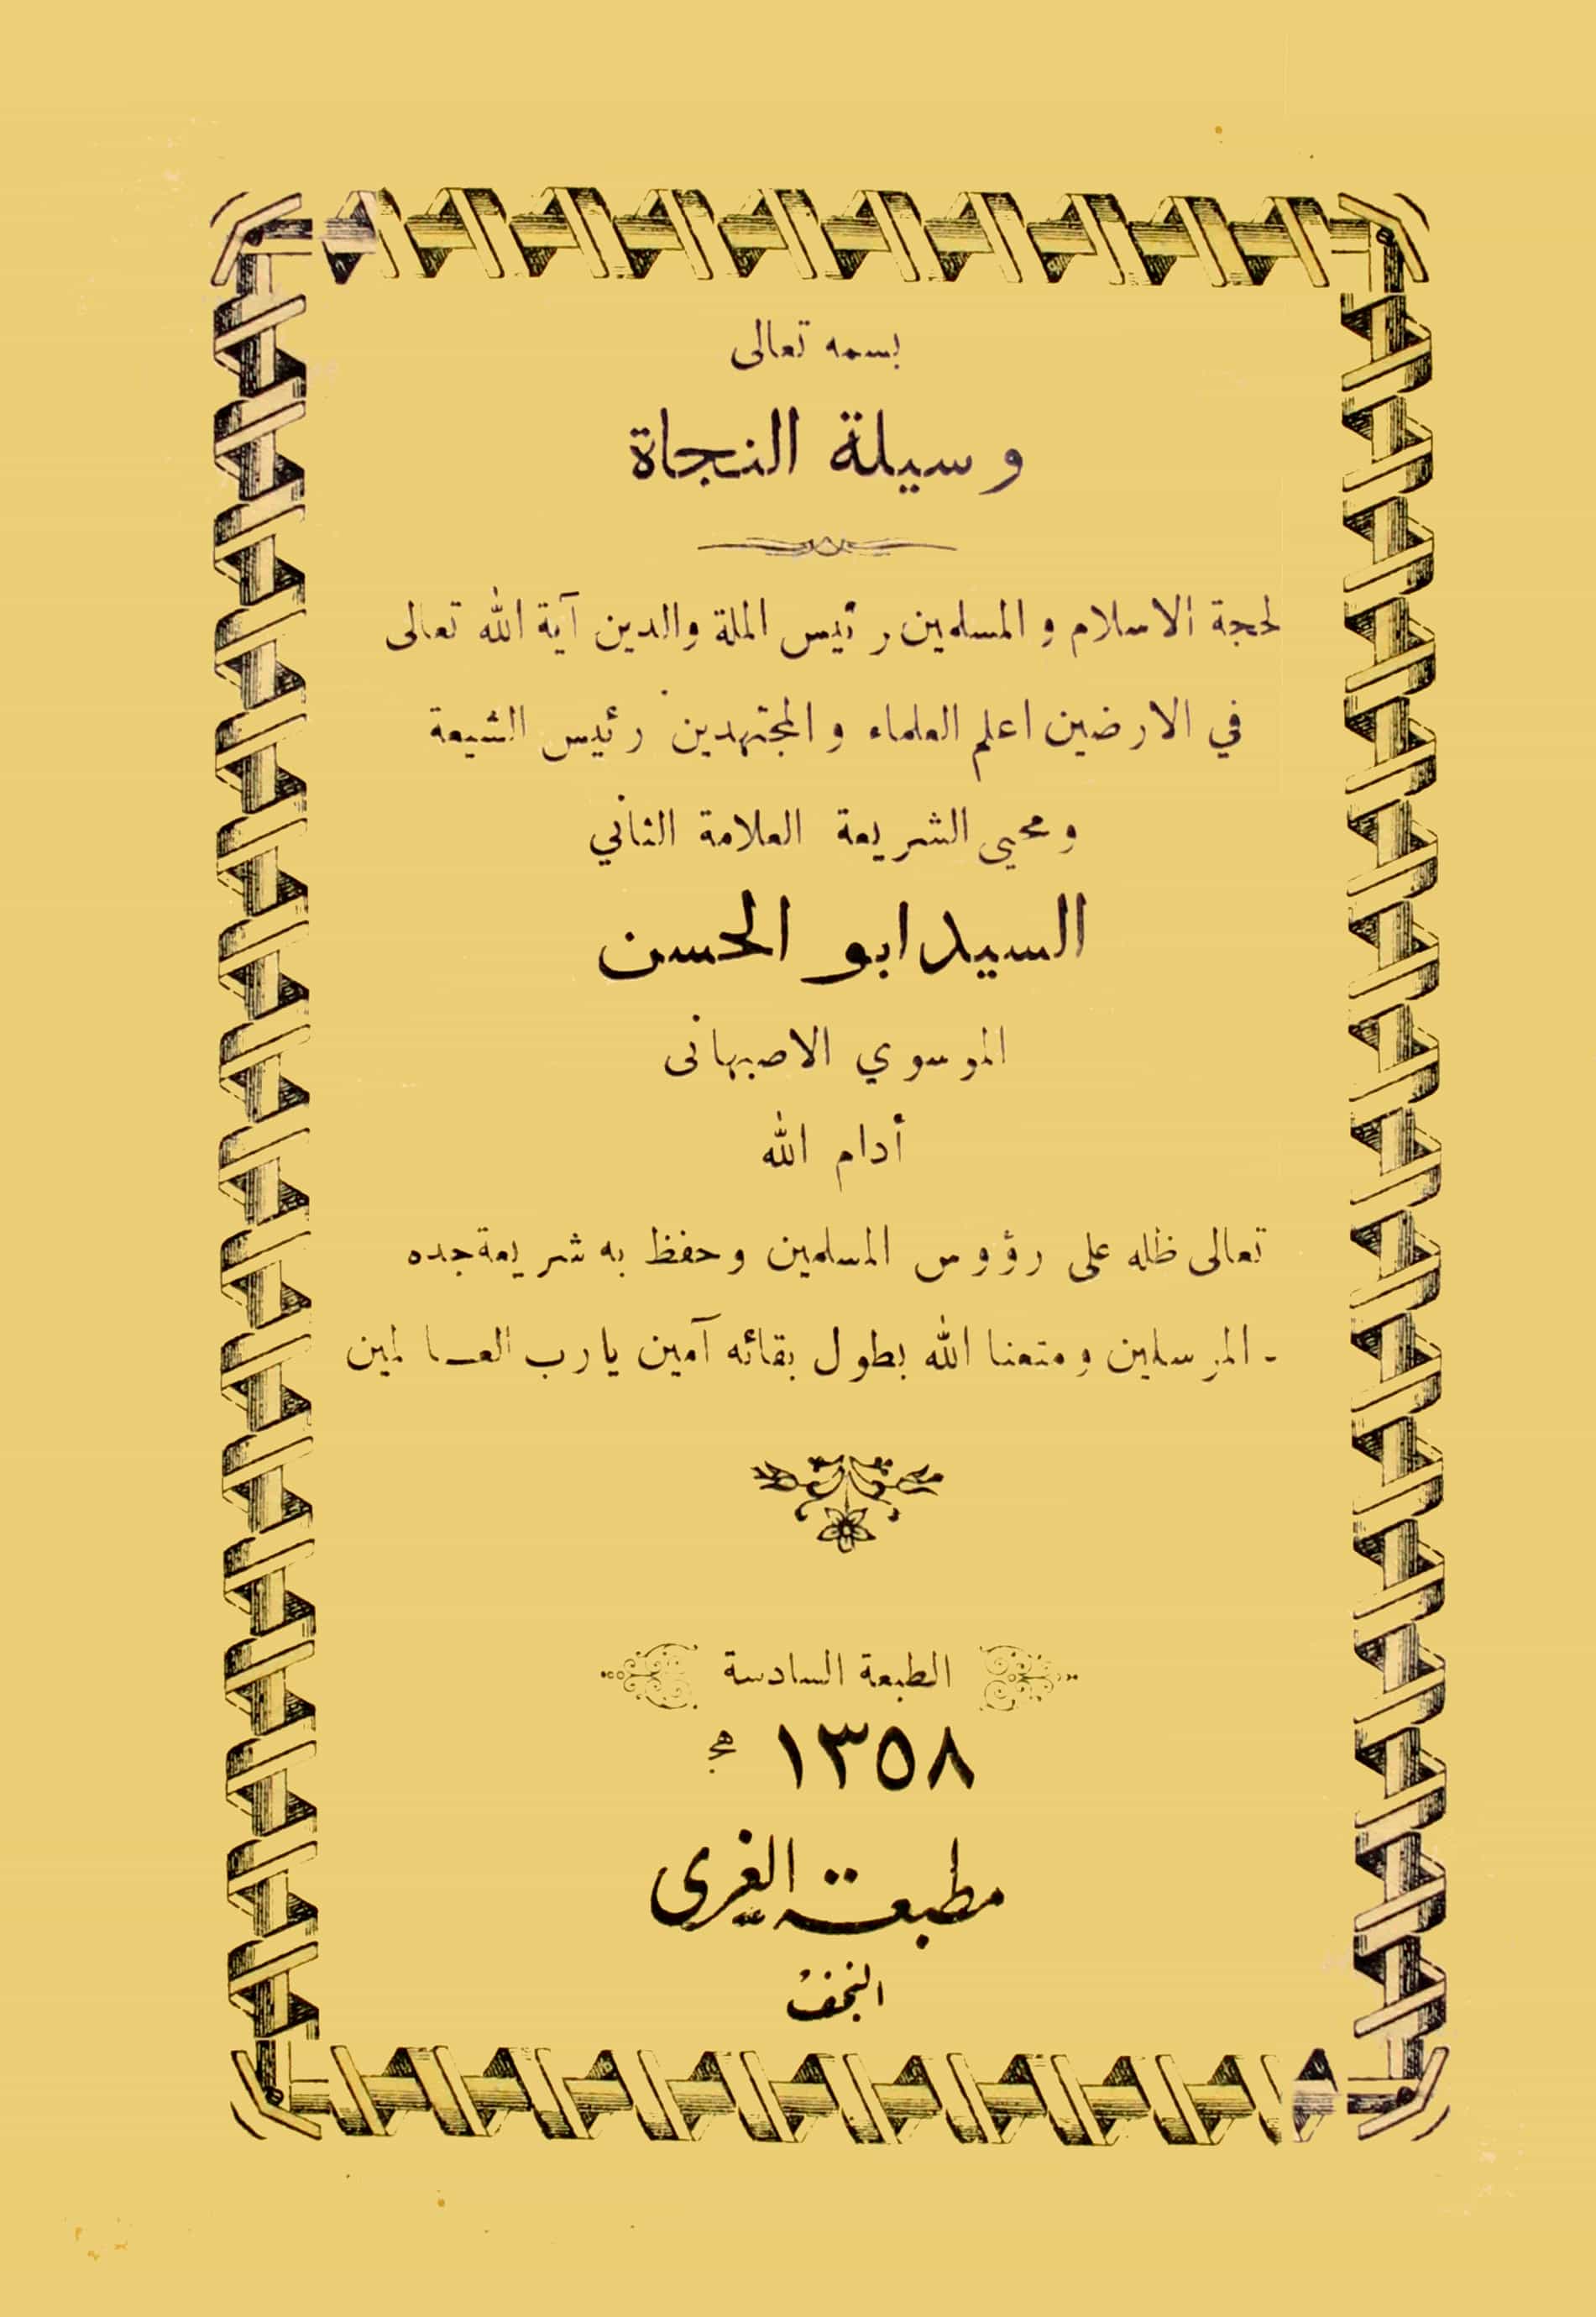 بسمه تعالى
وسيلة النجاة
لحجة الاسلام والمسلمين رئيس الملة والدين آية الله تعالى
في الارضين اعلم العلماء والمجتهدين رئيس الشيعة
ومحيي الشريعة العلامة الثاني
السيد ابو الحسن
الموسوي الاصبهانى
أدام الله
تعالى ظله على رؤوس المسلمين وحفظ به شريعة جده
- المرسلين ومتعنا الله بطول بقائه آمين يارب العـالمين
الطبعة السادسة
١٣٥٨ هج
مطبعة الغري
النجف